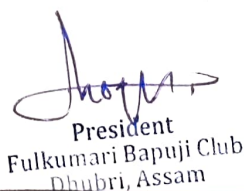 President
Fulkumari Bapuji Club
Dhubri, Assam